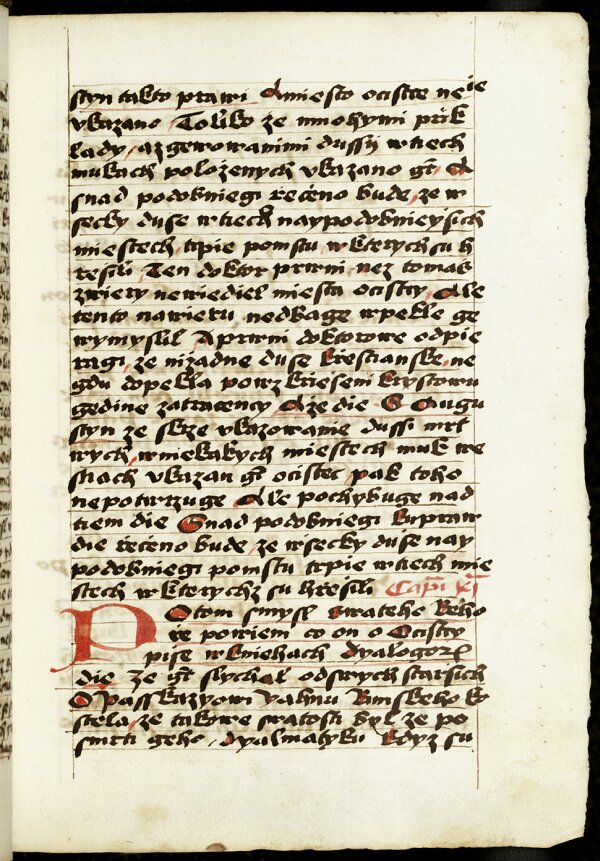 styn takto prawi A miesto ocistce neie
vkazano Toliko ze mnohymi přik
lady, a zgewowanimi dussij w tiech
mukach položenych vkazano gt̄. A
snad podobniegi řečeno bude, ze w
secky duse w tiech naypodobnieysich
miestech, trpie pomstu, w kterych su h
řesili Ten doktor prwni nez tomas
zwiery newiediel miesta ocistcy, Ale
tento nawieru nedkage w pekle ge
wymyslil A prwni doktorowe odpie
ragi, ze nizadne duse křestianske, ne
gdu do pekla po wzkřieseni krystowu
gedine zatraceny A že die S Augu
styn ze skrze vkazowanie dussi mrt
wych, w niekakych miestech muk we
snach vkazan gt̄ ocistec, pak toho
nepotwrzuge Ale pochybuge nad
tiem die Snad podobniegi ku praw
die řečeno bude, ze wsecky duse nay
podobniegi pomstu trpie w tiech mie
stech w kterychz su hřesili Capi XI
POtom smysl swateho Řeho
ře powiem co on o Ocistcy
pise w kniehach dyalogorꝝ
die ze gt̄ slychal od swych starsich
O passkazyowi yahnu Rimskeho ko
stela, ze takowe swatosti byl, ze po
smrti geho, dyalmatyku kdyz su